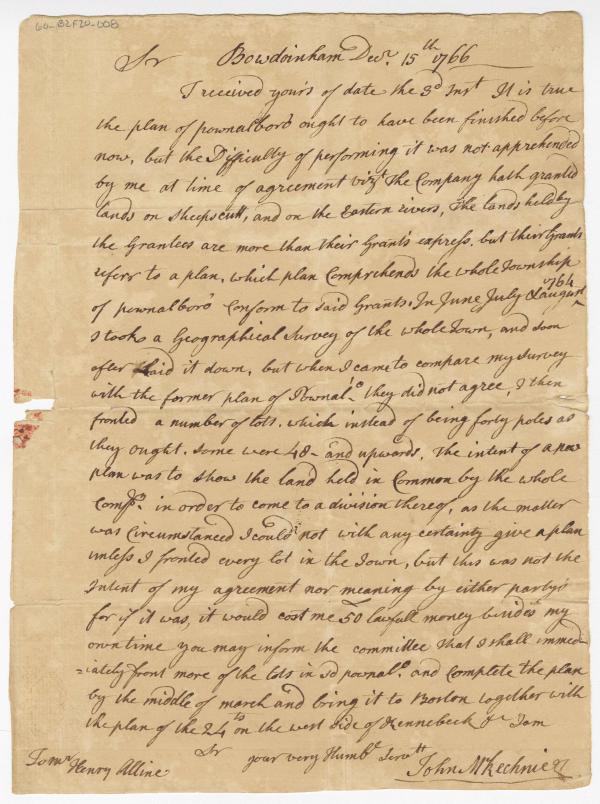 60-B2F20-008
Sr Bowdoinham Decr. 15th 1766
I received yours of date the 3d Inst It is true
the plan of pownalboro ought to have been finished before
now, but the Difficulty of performing it was not apprehended
by me at time of agreement vizt The Company hath granted
lands on Sheepscutt, and on the Eastern rivers, The lands held by
the Grantees are more than their Grants express, but their Grants
referr to a plan, which plan Comprehends the whole Township
of pownalboro Conform to said Grants. In June July & august 1764
I tooke a Geographical Survey of the whole Town, and soon
after Laid it down, but when I came to compare my survey
with the former plan of Pownalo. they did not agree, I then
fronted a number of lots, which instead of being forty poles as
they ought, some were 48 – and upwards, The intent of a new
plan was to show the land held in Common by the whole
Compo. in order to come to a division thereof, as the matter
was Circumstanced I could not with any certainty give a plan
unless I fronted every lot in the Town, but this was not the
Intent of my agreement nor meaning by either partys
for if it was, it would cost me 50 lawfull money besides my
own time you may inform the committee that I shall immed-
=iately front more of the lots in sd pownalo. and Complete the plan
by the middle of march and bring it to Boston together with
the plan of the 24 on the west side of Kennebeck Rr I am
Sr your very Humbl Servtt
To mr Henry Alline John McKechnie